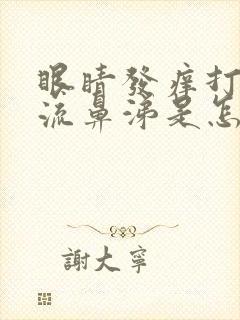 眼睛發癢打
流鼻涕是怎
謝大寧